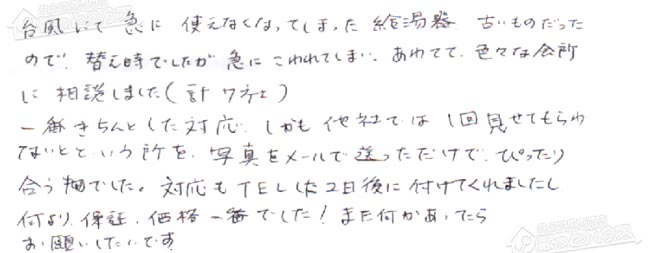 台風にて 急に 使えなくなってしまった 給湯器 古いものだった
ので、替え時でしたが 急に こわれてしまい、あわてて、色々な会所
に 相談しました(計7社)
一番きちんとした対応、しかも 他社では 1回見せてもらわ
ないとという所を、写真をメールで送っただけで、ぴったり
合う物でした。対応もTELした2日後に付けてくれましたし
何より、保証、価格一番でした!また何かあったら
お願いしたいです